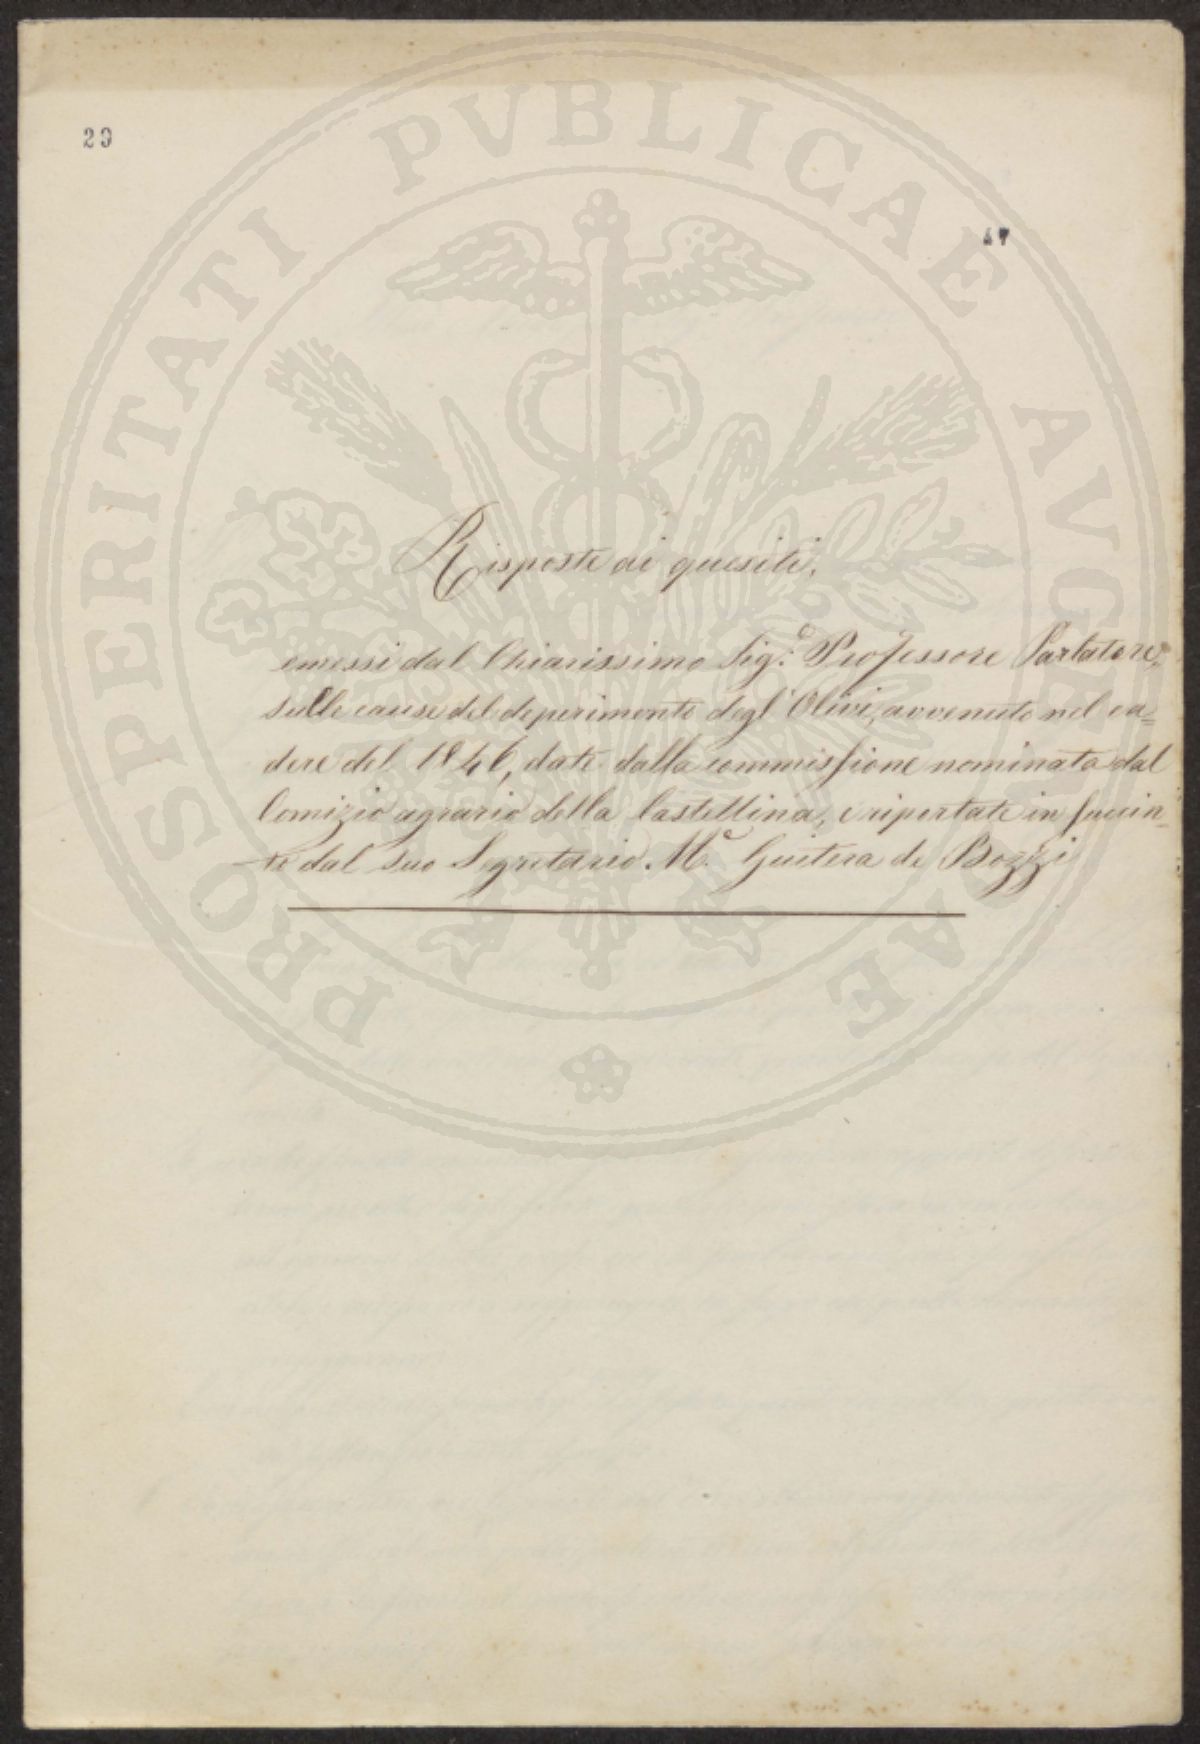 29
47
PROSPERITATI PVBLICAE AVGENDAE
Risposte ai quesiti,
emessi dal Chiarissimo Sig.e Professore Parlatore,
sulle cause del deperimento degl'Olivi, avvenuto nel ca=
dere del 1846, date dalla commissione nominata dal
Comizio agrario della Castellina, e riportate in succin=
te dal suo Segretario M.e Guitera de Bozzi